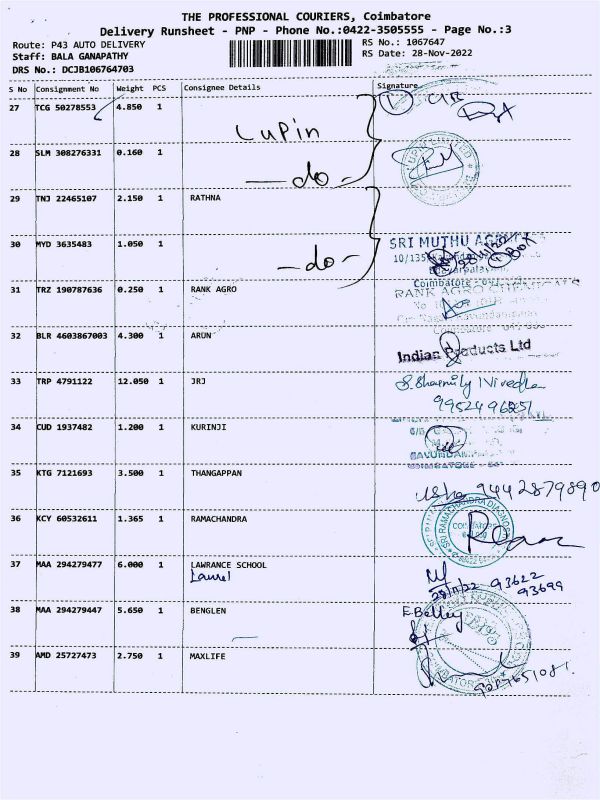 THE PROFESSIONAL COURIERS, Coimbatore
Delivery Runsheet - PNP - Phone No.:0422-3505555 - Page No.:3
Route: P43 AUTO DELIVERY
RS No.: 1067647
Staff: BALA GANAPATHY
RS Date: 28-Nov-2022
DRS No.: DCJB106764703
S No Consignment No Weight PCS Consignee Details Signature
27 TCG 50278553 4.850 1
Lupin
28 SLM 308276331 0.160 1
LUPIN LIMITED
-do-
29 TNJ 22465107 2.150 1 RATHNA
30 MYD 3635483 1.050 1
SRI MUTHU
10/135
-do-
Coimbatore
31 TRZ 190787636 0.250 1 RANK AGRO
RANK AGRO
32 BLR 4603867003 4.300 1 ARUN
Indian Products Ltd
33 TRP 4791122 12.050 1 JRJ
34 CUD 1937482 1.200 1 KURINJI
35 KTG 7121693 3.500 1 THANGAPPAN
Usha 9442879890
36 KCY 60532611 1.365 1 RAMACHANDRA
37 MAA 294279477 6.000 1 LAWRANCE SCHOOL
Laurel
93622
93699
38 MAA 294279447 5.650 1 BENGLEN
39 AMD 25727473 2.750 1 MAXLIFE